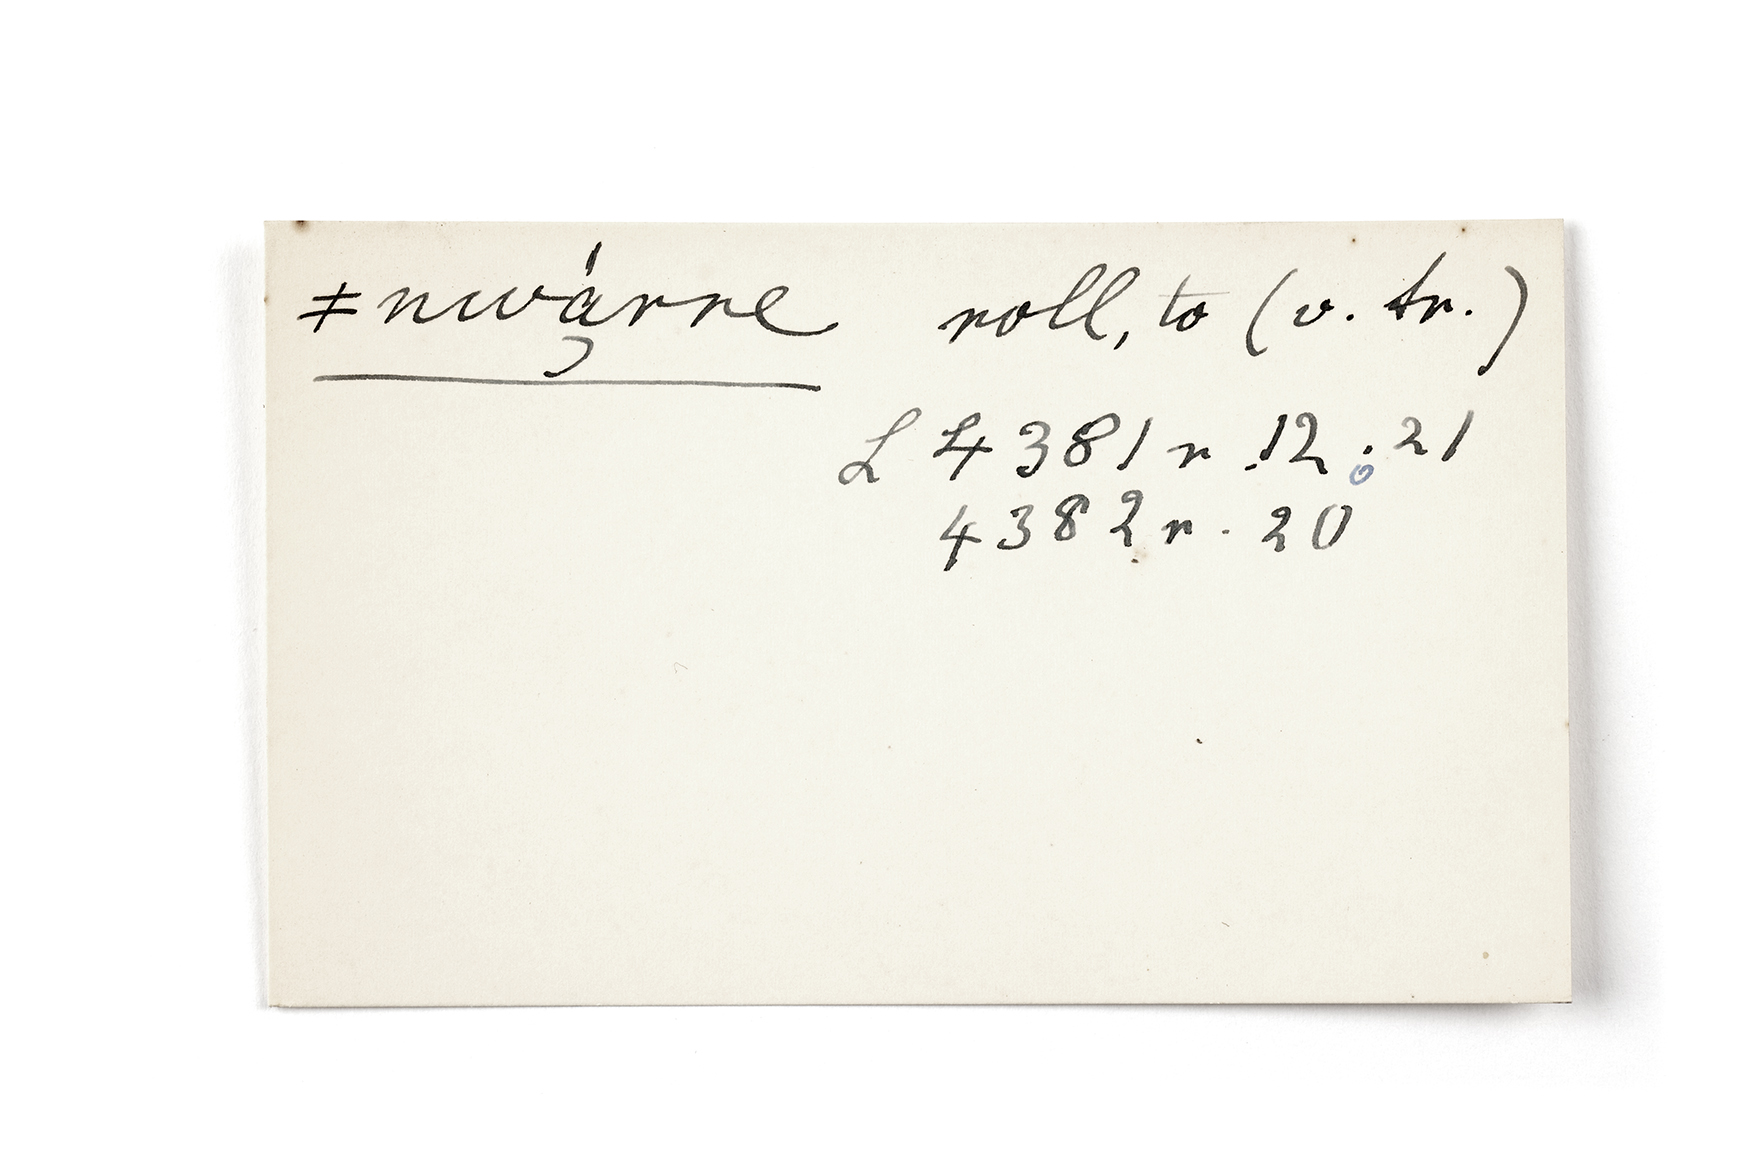 ǂnwą́rre roll, to (v. tr.)
L 4381 r. 12. 21
4382 r. 20